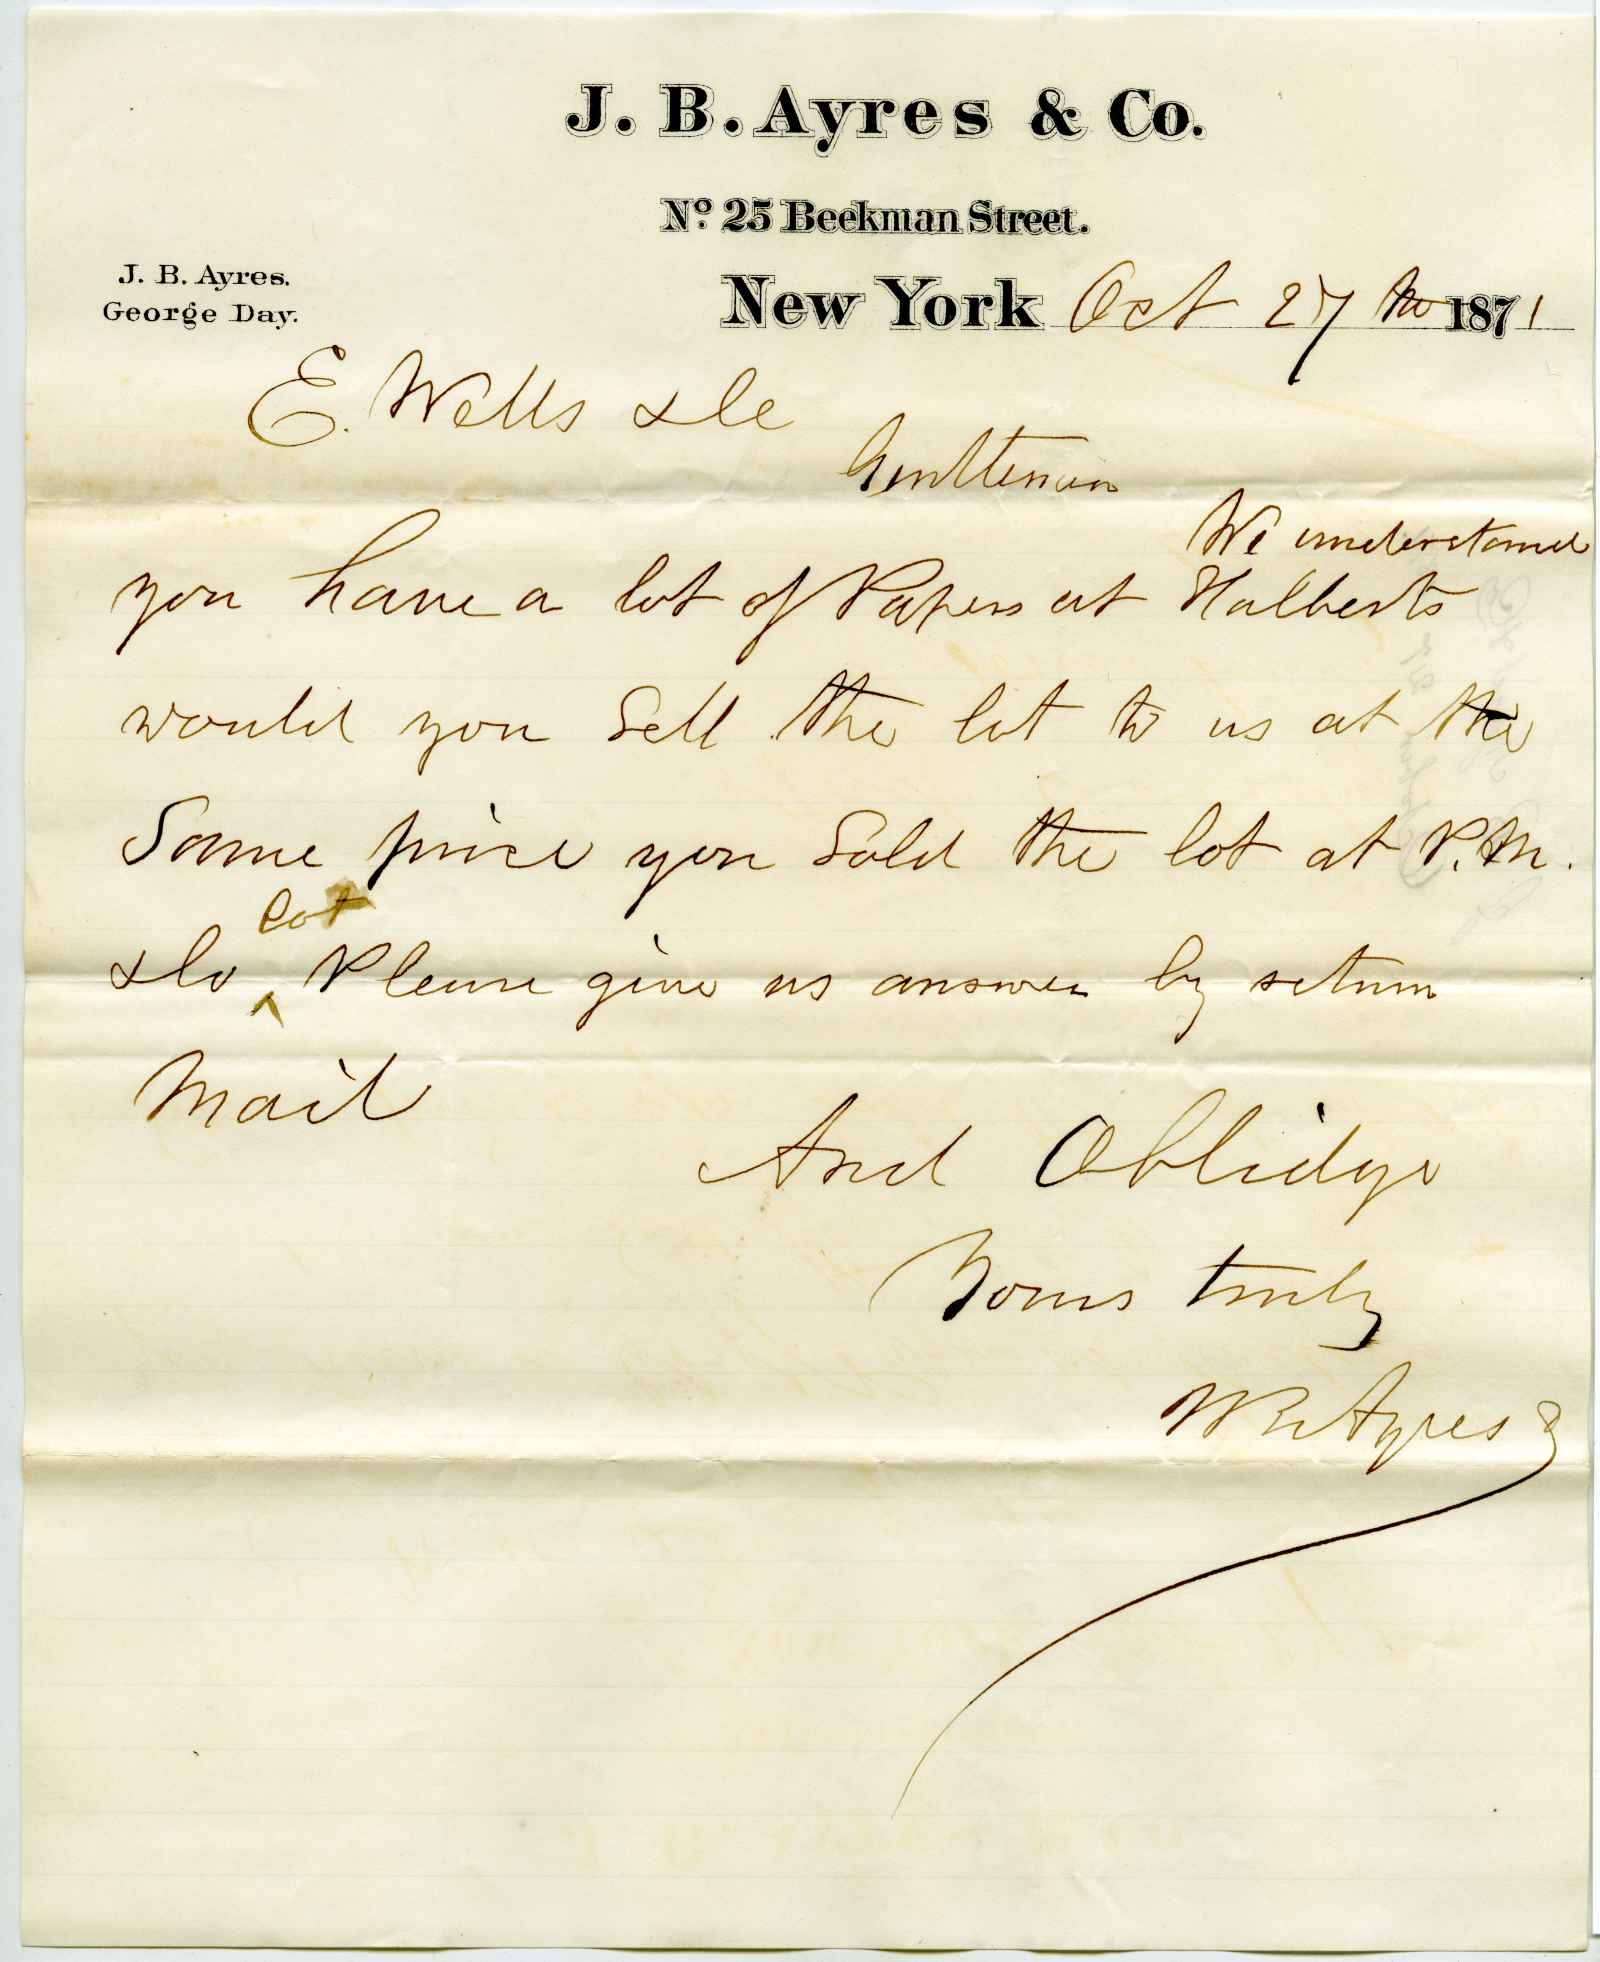 J. B. Ayres & Co.
No. 25 Beekman Street.
J. B. Ayres.
George Day.
New York Oct 27 1871
E. Wells & Co
Gentlemen
We understand
you have a lot of Papers at Halberts
would you Sell the lot to us at the
Same price you Sold the lot at P.M.
& Co lot Please give us answer by return
Mail
And Oblidge
Yours truly
Ayres